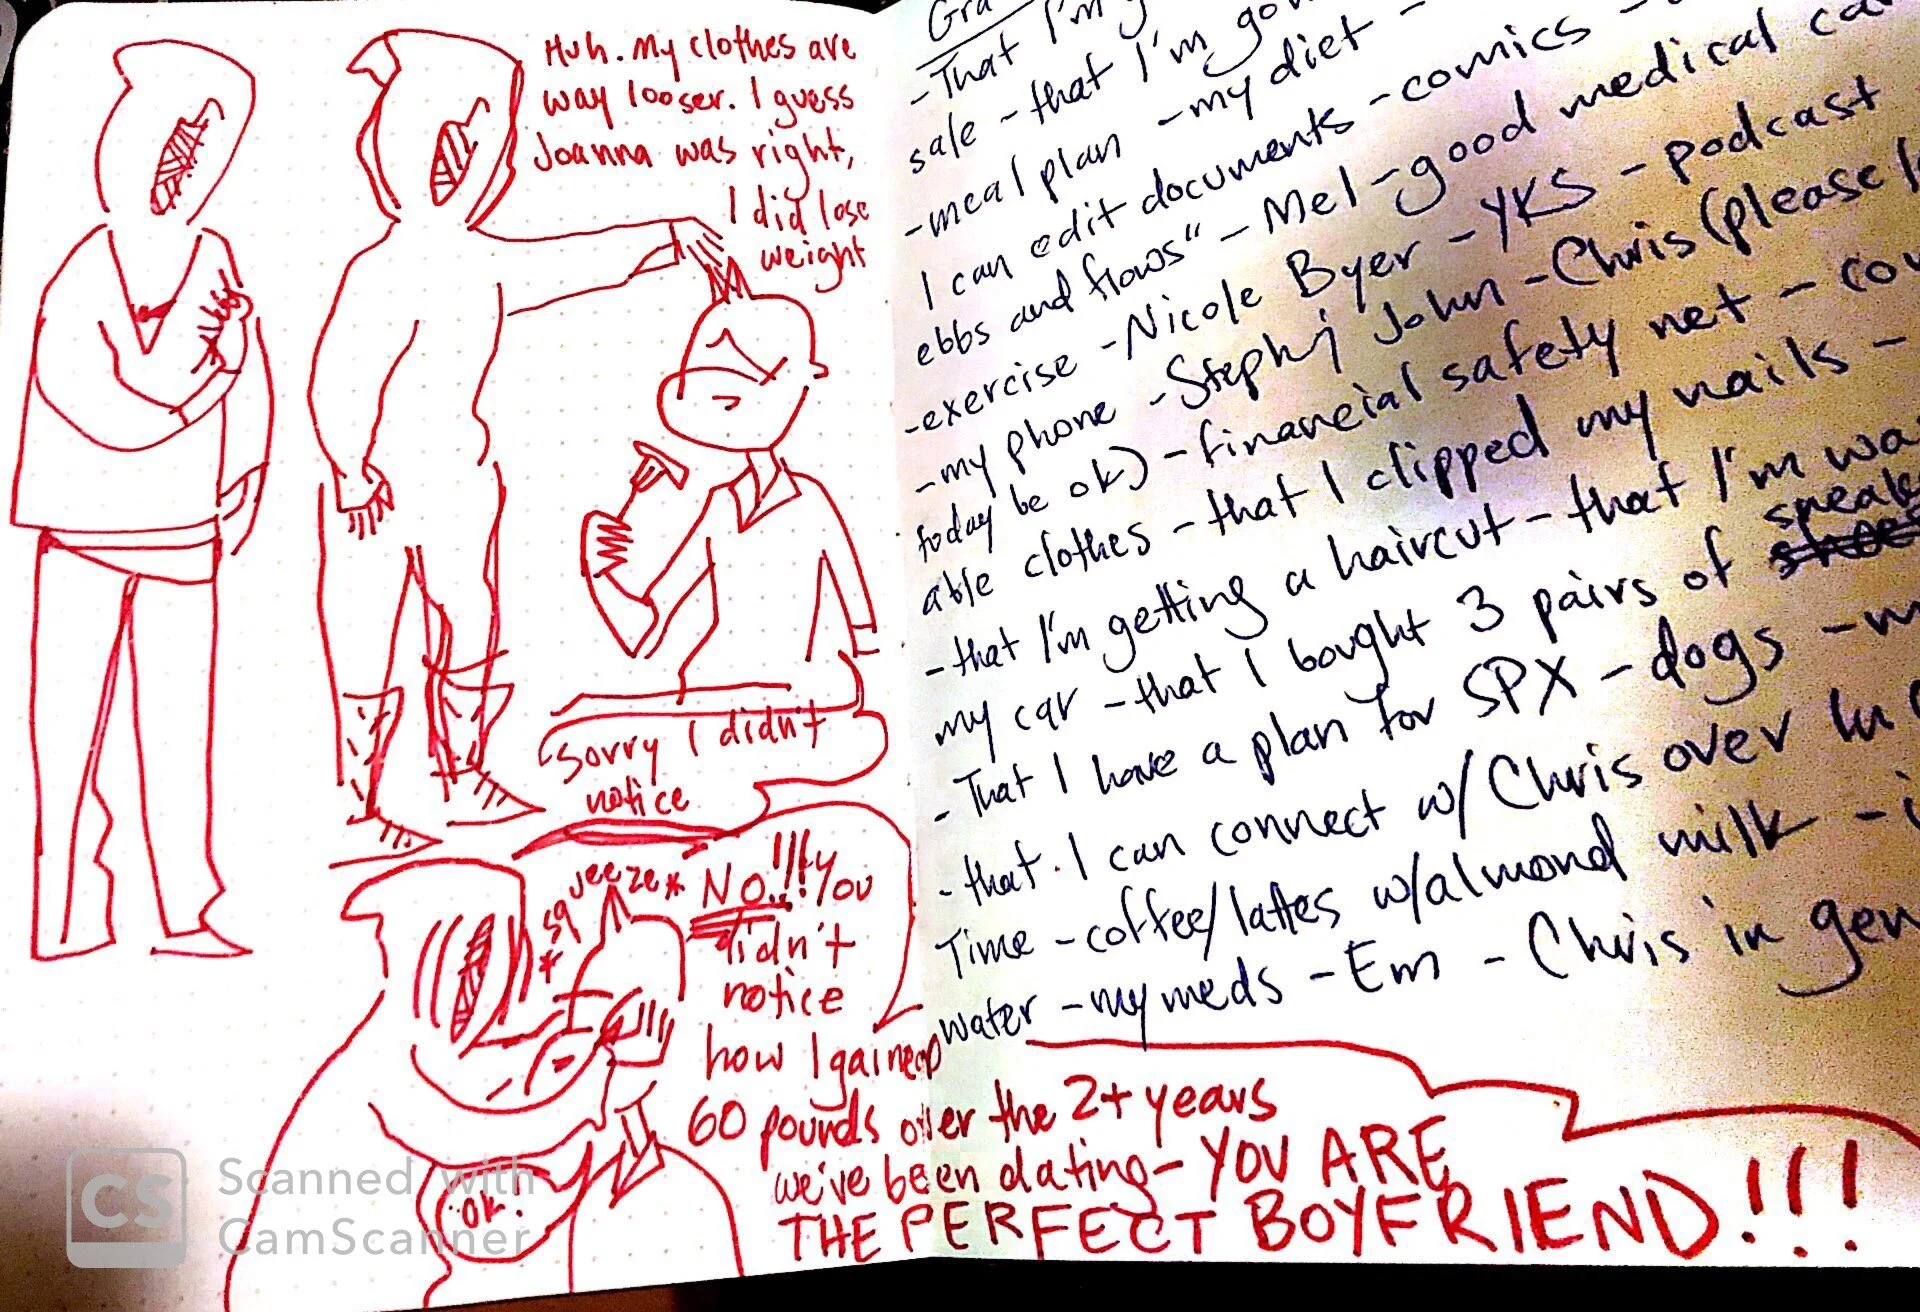 Huh. My clothes are
way looser. I guess
Joanna was right,
I did lose
weight
Sorry I didn't
notice
*squeeze*
NO!!! You
didn't
notice
how I gained
60 pounds over the 2+ years
we've been dating- YOU ARE
THE PERFECT BOYFRIEND!!!
OK!
-That I'm
sale - that I'm
-meal plan - my diet -
I can edit documents - comics -
ebbs and flows" - Mel - good medical
-exercise - Nicole Byer - YKS - podcast
-my phone - Stephi, John - Chris (please
today be ok) - financial safety net -
able clothes - that I clipped my nails -
-that I'm getting a haircut - that I'm
my car - that I bought 3 pairs of
- That I have a plan for SPX - dogs -
- that I can connect w/ Chris over
Time - coffee/lattes w/almond milk -
water - my meds - Em - Chris in
CS Scanned with
CamScanner